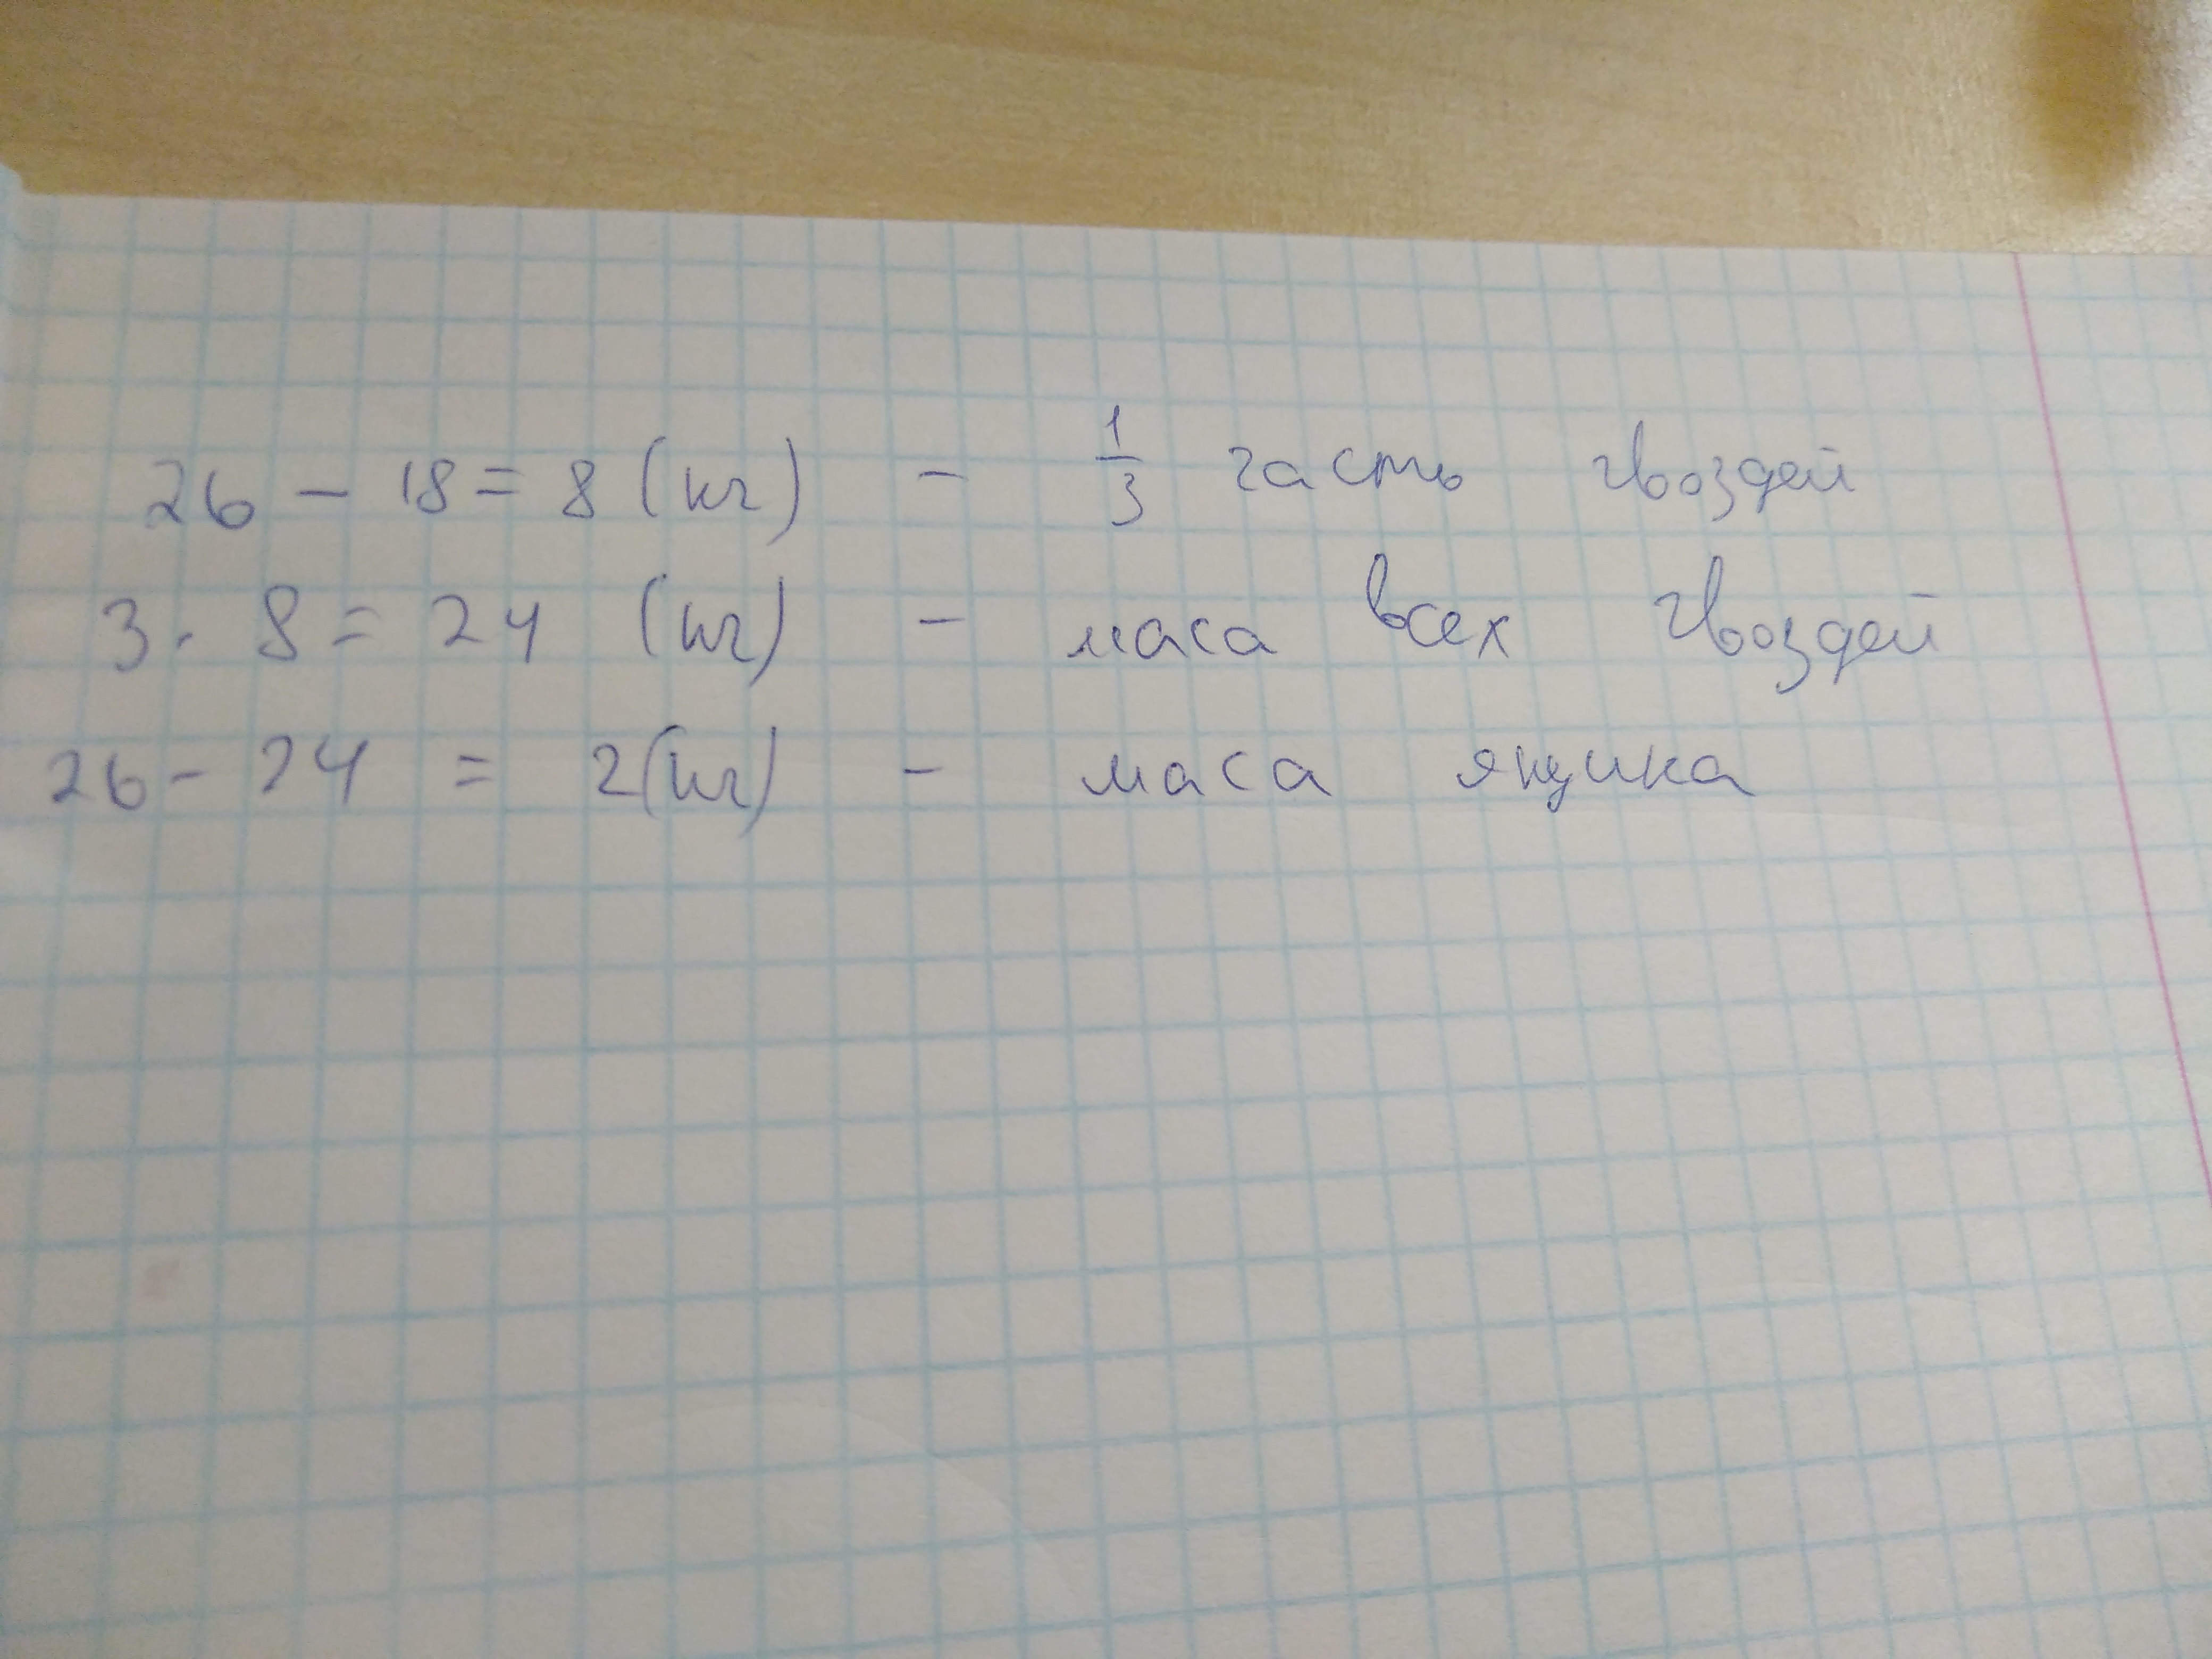 26 - 18 = 8 (кг) - 1/3 часть гвоздей
3 · 8 = 24 (кг) - маса всех гвоздей
26 - 24 = 2 (кг) - маса ящика